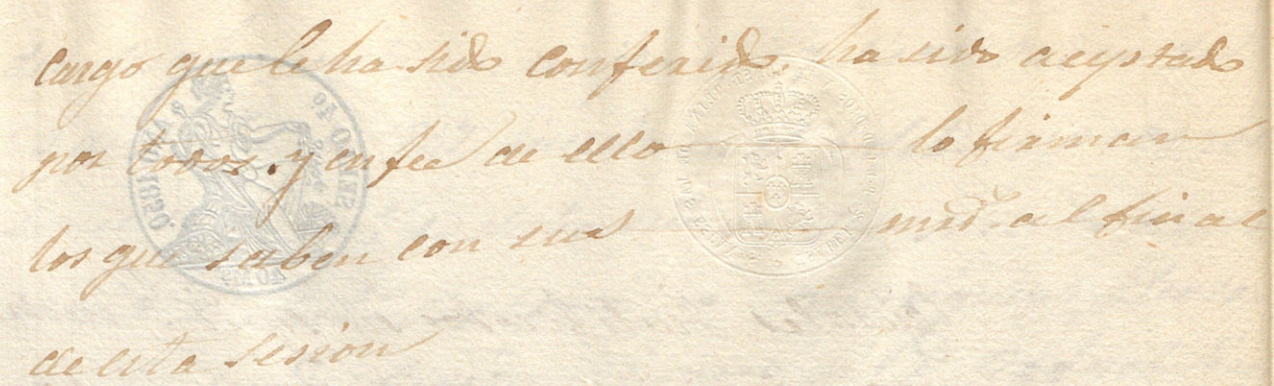 cargo que le ha sido conferido. ha sido aceptado
por todos. y en fee de ello lo firman
los que saben con sus mrd. al final
de esta sesion